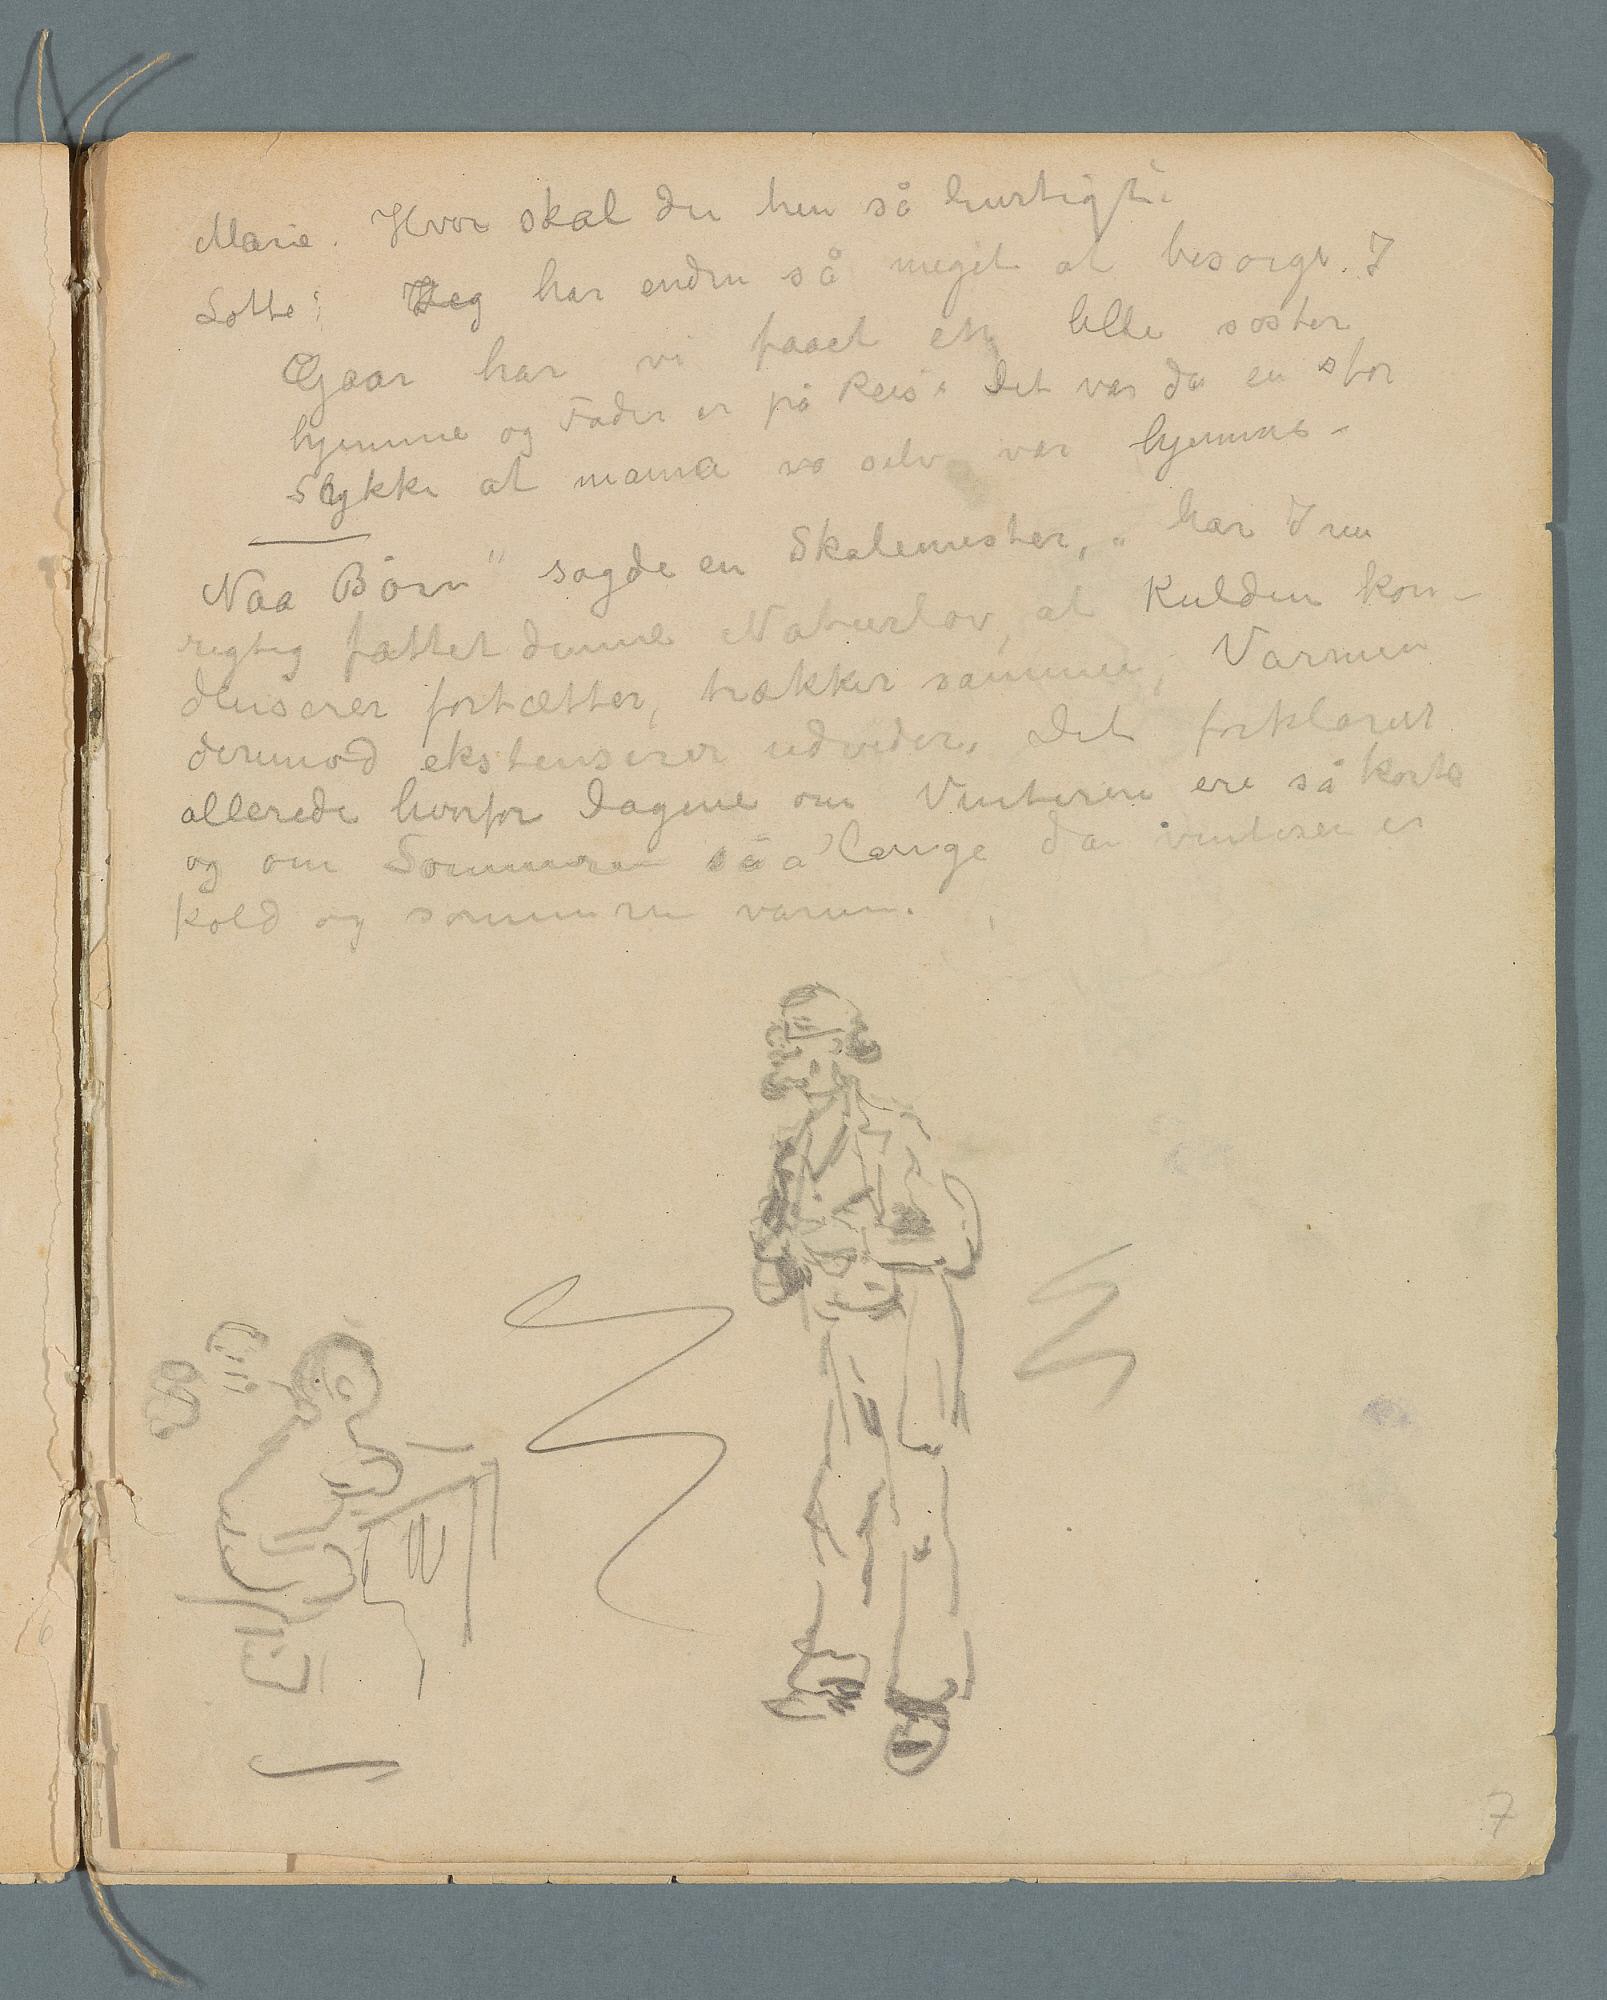 Marie. Hvor skal du hen så hurtigt.
Lotte: Jeg har endnu så meget at besorge. I
Gaar har vi faaet en lille søster
hjemme og Fader er på Reis. Det var da en stor
Slykke at mama selv var hjemme –
Naa Børn" sagde en Skolemester, „ har I nu
rigtig fattet denne Naturlov, at Kulden kon-
denserer fortætter, trækker sammen, Varmen
derimod ekstenserer udvider. Det forklarer
allerede hvorfor Dagene om Vinteren ere så korte
og om Sommeren så lange da vinteren er
kold og sommeren varm.
7